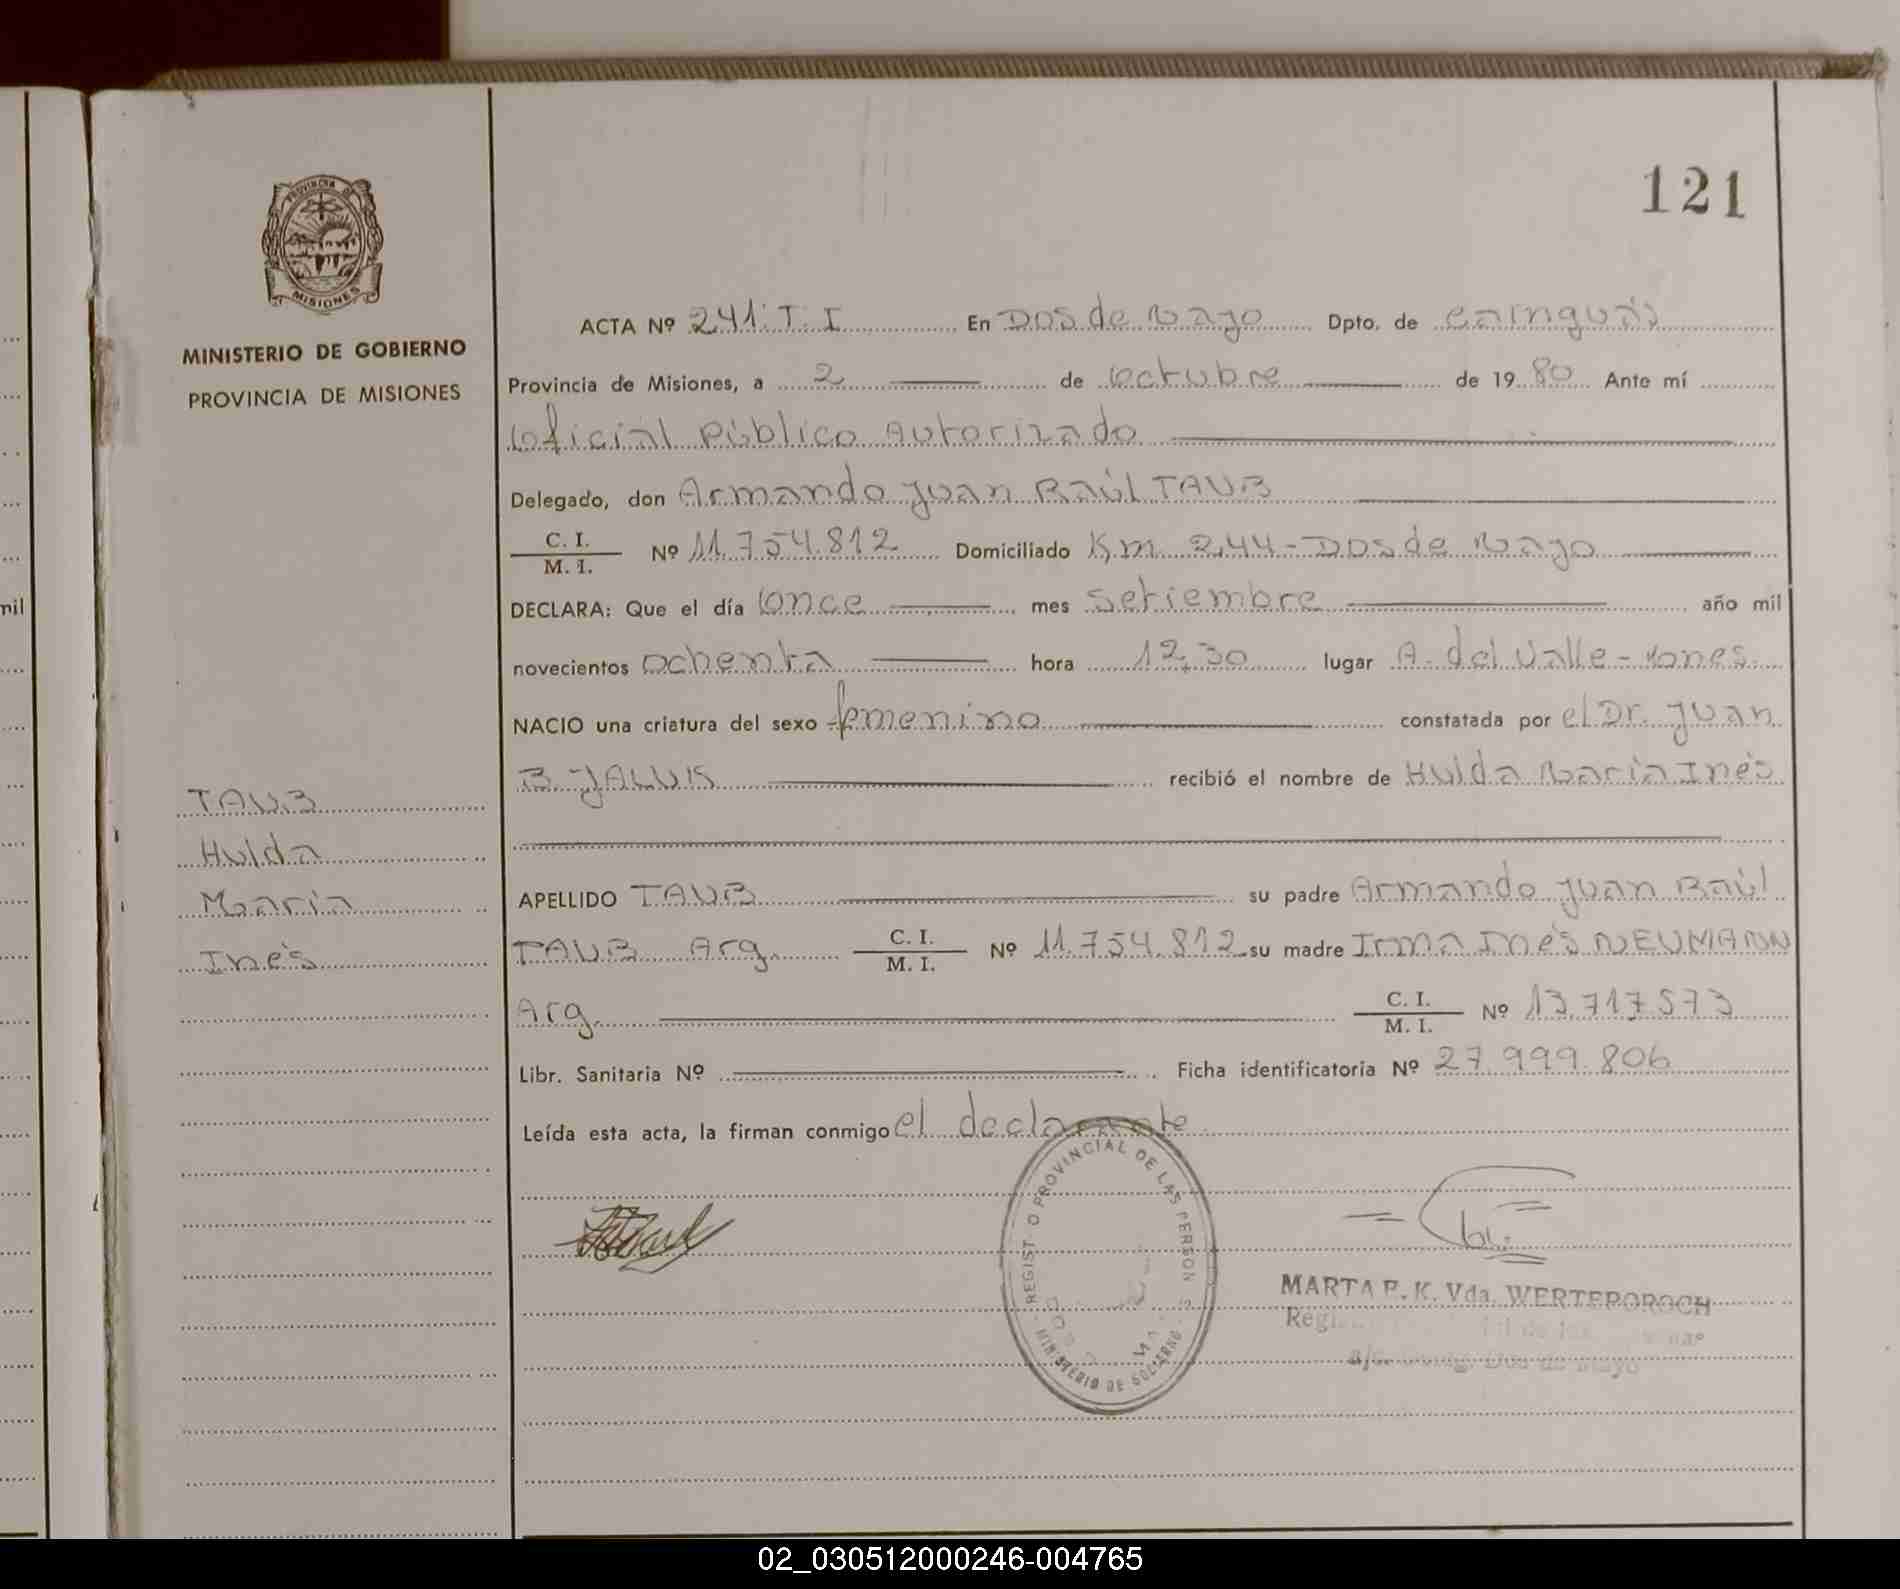 121
PROVINCIA DE
MISIONES
MINISTERIO DE GOBIERNO
PROVINCIA DE MISIONES
ACTA Nº 241. T. I En Dos de Mayo Dpto. de Cainguás
Provincia de Misiones, a 2 de Octubre de 19 80 Ante mí
Oficial Público Autorizado
Delegado, don Armando Juan Raúl TAUB
C. I.
M. I. Nº 11.754.812 Domiciliado Km 244 - Dos de Mayo
DECLARA: Que el día Once mes Setiembre año mil
novecientos ochenta hora 12,30 lugar A. del Valle - Mones.
NACIO una criatura del sexo femenino constatada por el Dr. Juan
B. JALUK recibió el nombre de Hulda María Inés
APELLIDO TAUB su padre Armando Juan Raúl
TAUB Arg. C. I.
M. I. Nº 11.754.812 su madre Irma Inés NEUMANN
Arg. C. I.
M. I. Nº 13.717.573
Libr. Sanitaria Nº Ficha identificatoria Nº 27.999.806
Leída esta acta, la firman conmigo el declarante
TAUB
Hulda
María
Inés
PROVINCIAL DE LAS PERSON
MINISTERIO DE GOBIERNO
MARTA E. K. Vda. WERTEPOROCH
Dos de Mayo
mil
02_030512000246-004765